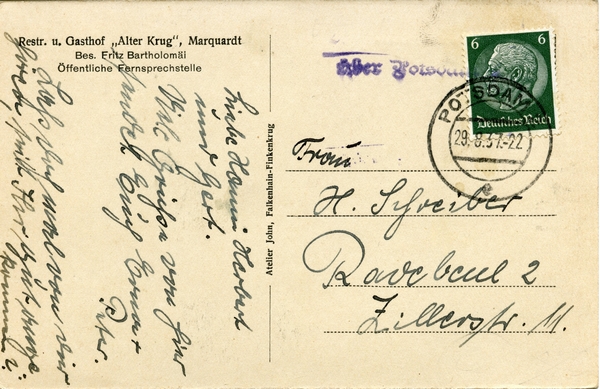 Restr. u. Gasthof „Alter Krug“, Marquardt
Bes. Fritz Bartholomäi
Öffentliche Fernsprechstelle
Liebe Hanni Herbert
und Gert.
Viele Grüße von hier
sendet Euch Erna +
Peter.
Laßt Euch mal von
Atelier John, Falkenhain-Finkenkrug
über Potsdam
6 6
Deutsches Reich
POTSDAM
29.8.37.-22
e
Frau
H. Schreiber
Radebeul 2
Zillerstr. 11.